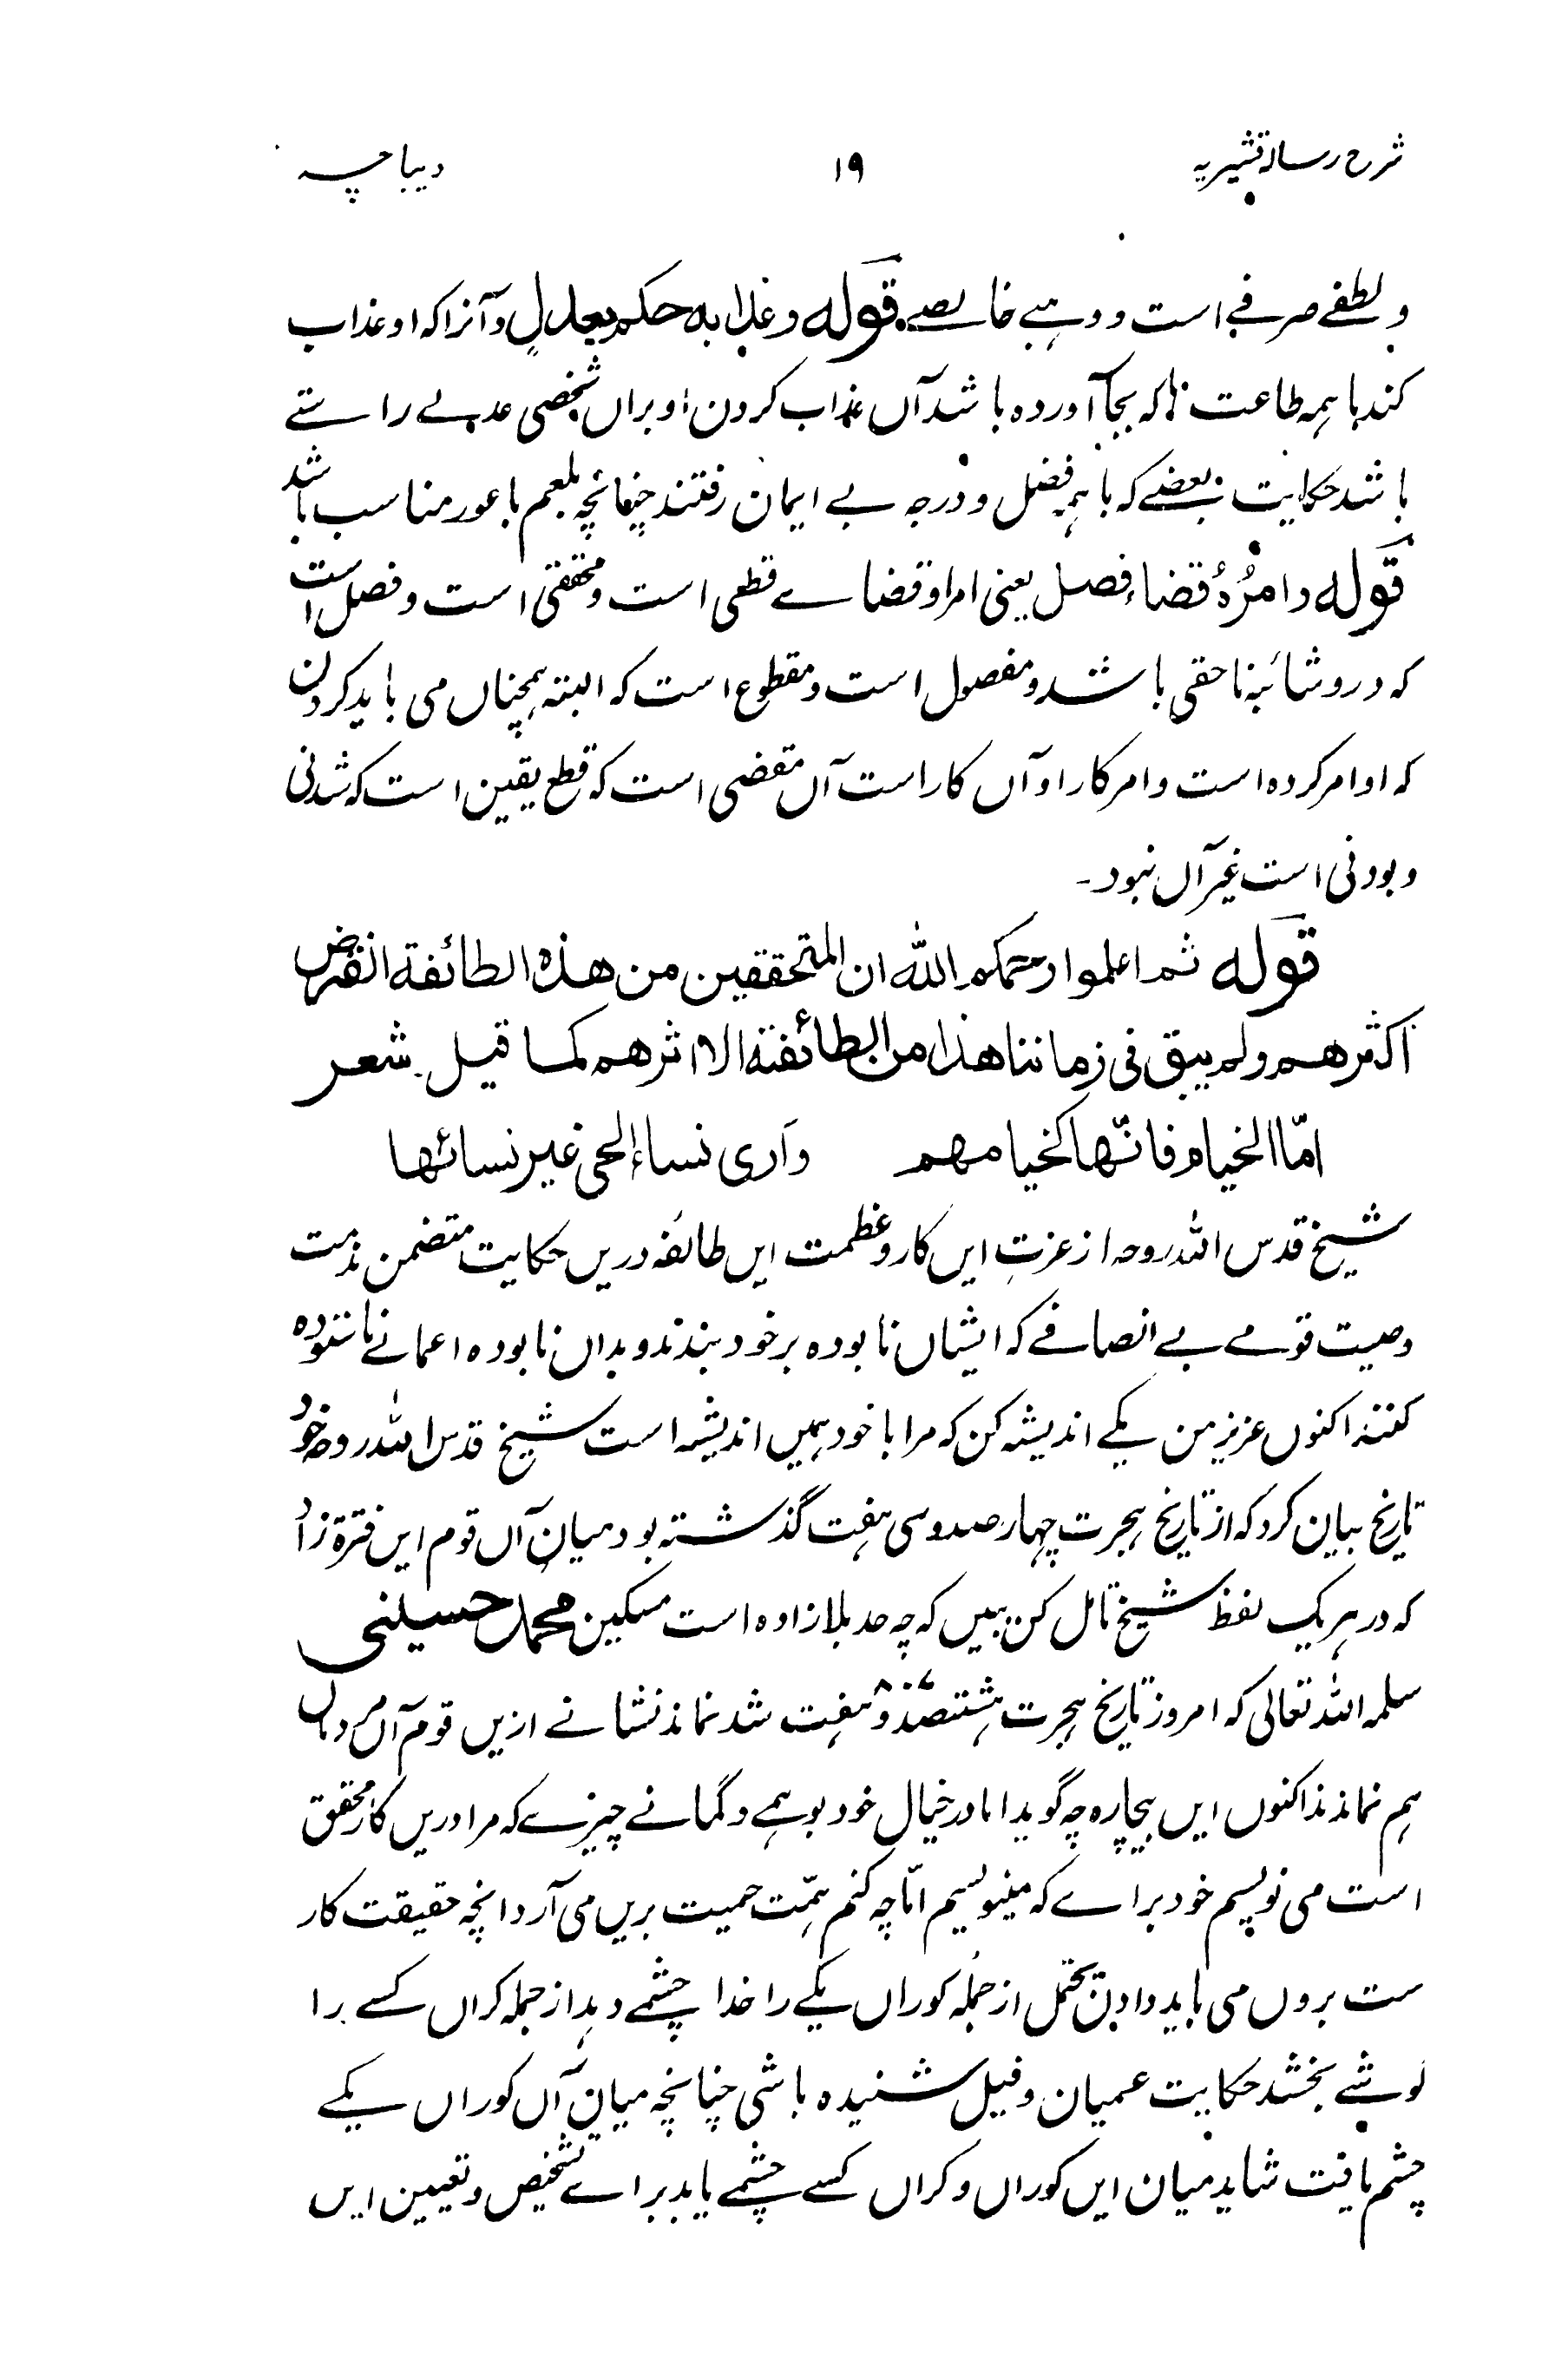 شرح رسالۂ قشیریه ۱۹ دیباچه
و لطفے صرفے است و وہبے خالصے۔ قوله وعذابه حکم بعدلٍ و آنرا کہ او عذاب
کند باہمہ طاعت ہا کہ بجا آوردہ باشد آں عذاب کردن او براں شخصی عدلے راستے
باشد حکایت بعضے کہ باہمہ فضل و درجہ بے ایمان رفتند چنانچہ بلعم باعور مناسب باشد
قوله وامرُهُ قضاء فصل یعنی امر او قضاے قطعی است و محققی است و فصل است
کہ درو شائبہ ناحقی باشد و مفصول است و مقطوع است کہ البتہ ہمچناں می باید کردن
کہ او امر کردہ است و امر کار او آں کار است آں مقضی است کہ قطع یقین است کہ شدنی
و بودنی است غیر آں نبود۔
قوله ثم اعلموا رحمکم الله ان المتحققین من هذه الطائفة انقرض
اکثرهم ولم یبق فی زماننا هذا من الطائفة الا اثرهم کما قیل۔ شعر
امّا الخیام فانّها کخیامهم وَاَری نساء الحی غیر نسائها
شیخ قدس اللہ روحہ از عزتِ ایں کار و عظمت ایں طائفہ دریں حکایت متضمن مذمت
وصیت قومے بے انصافے کہ ایشاں نابودہ بر خود بندند و بداں نابودہ اعمانے ناستودہ
کنند اکنوں عزیز من یکے اندیشہ کن کہ مرا با خود ہمیں اندیشہ است شیخ قدس اللہ روحہ خود
تاریخ بیان کرد کہ از تاریخ ہجرت چہار صد و سی ہفت گذشتہ بود میان آں قوم ایں فترة زاد
کہ در ہر یک لفظ شیخ تامل کن ببیں کہ چہ حد بلا زادہ است مسکین محمد حسینی
سلمہ اللہ تعالی کہ امروز تاریخ ہجرت ہشتصد و ہفت شد نماند نشانے ازیں قوم آں مرداں
ہم نماندند اکنوں ایں بیچارہ چہ گوید اما در خیال خود بوہمے و گمانے چیزے کہ مرا دریں کار محقق
است می نویسم خود براے کہ مینویسیم امّا چہ کنم ہمّت حمیت بریں می آرد انچہ حقیقت کار
ست بروں می باید داد بتحمل از جملہ کوراں یکے را خدا چشمے دہد از جملہ کراں کسے را
گوشے بخشد حکایت عمیان و فیل شنیدہ باشی چنانچہ میانِ آں کوراں یکے
چشم یافت شاید میان ایں کوراں و کراں کسے چشمے یابد براے تشخیص و تعیین ایں